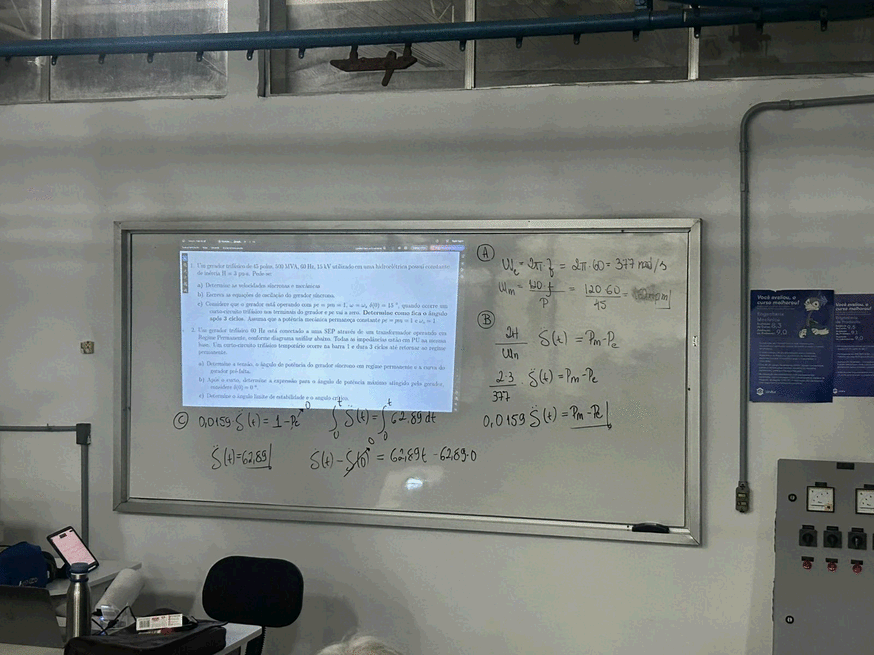 1. Um gerador trifásico de 45 polos, 100 MVA, 60 Hz, 13 kV utilizado em uma hidroelétrica possui constante
de inércia H = 3 p.u.s. Pede-se:
a) Determine as velocidades síncronas e mecânicas
b) Escreva as equações de oscilação do gerador síncrono.
c) Considere que o gerador está operando com pe = pm = 1, ω = ωs δ(0) = 15 °, quando ocorre um
curto-circuito trifásico nos terminais do gerador e pe vai a zero. Determine como fica o ângulo
após 3 ciclos. Assuma que a potência mecânica permaneça constante
2. Um gerador trifásico 60 Hz está conectado a uma SEP através de um transformador operando em
Regime Permanente, conforme diagrama unifilar abaixo. Todas as impedâncias estão em PU na mesma
base. Um curto-circuito trifásico temporário ocorre na barra 1 e dura 3 ciclos até retornar ao regime
permanente.
a) Determine a tensão, o ângulo de potência do gerador síncrono em regime permanente e a curva do
gerador pré-falta.
b) Após a curva, determine a expressão para o ângulo de potência máximo atingido pelo gerador,
considere δ(0) = 0 °.
c) Determine o ângulo limite de estabilidade e o ângulo crítico.
A
We = 2π·f = 2π·60 = 377 rad/s
Wm = 120·f / P = 120·60 / 45 =
B
2H / Wn δ̈(t) = Pm - Pe
2·3 / 377 δ̈(t) = Pm - Pe
0,0159 δ̈(t) = Pm - Pe
C
0,0159 δ̈(t) = 1 - Pe 0
δ̈(t) = 62,89
∫0 t δ̈(t) = ∫0 t 62,89 dt
δ̇(t) - δ̇(0) 0 = 62,89t - 62,89·0
Você avaliou, o
curso melhorou!
Engenharia
Mecânica
8.3
9.0